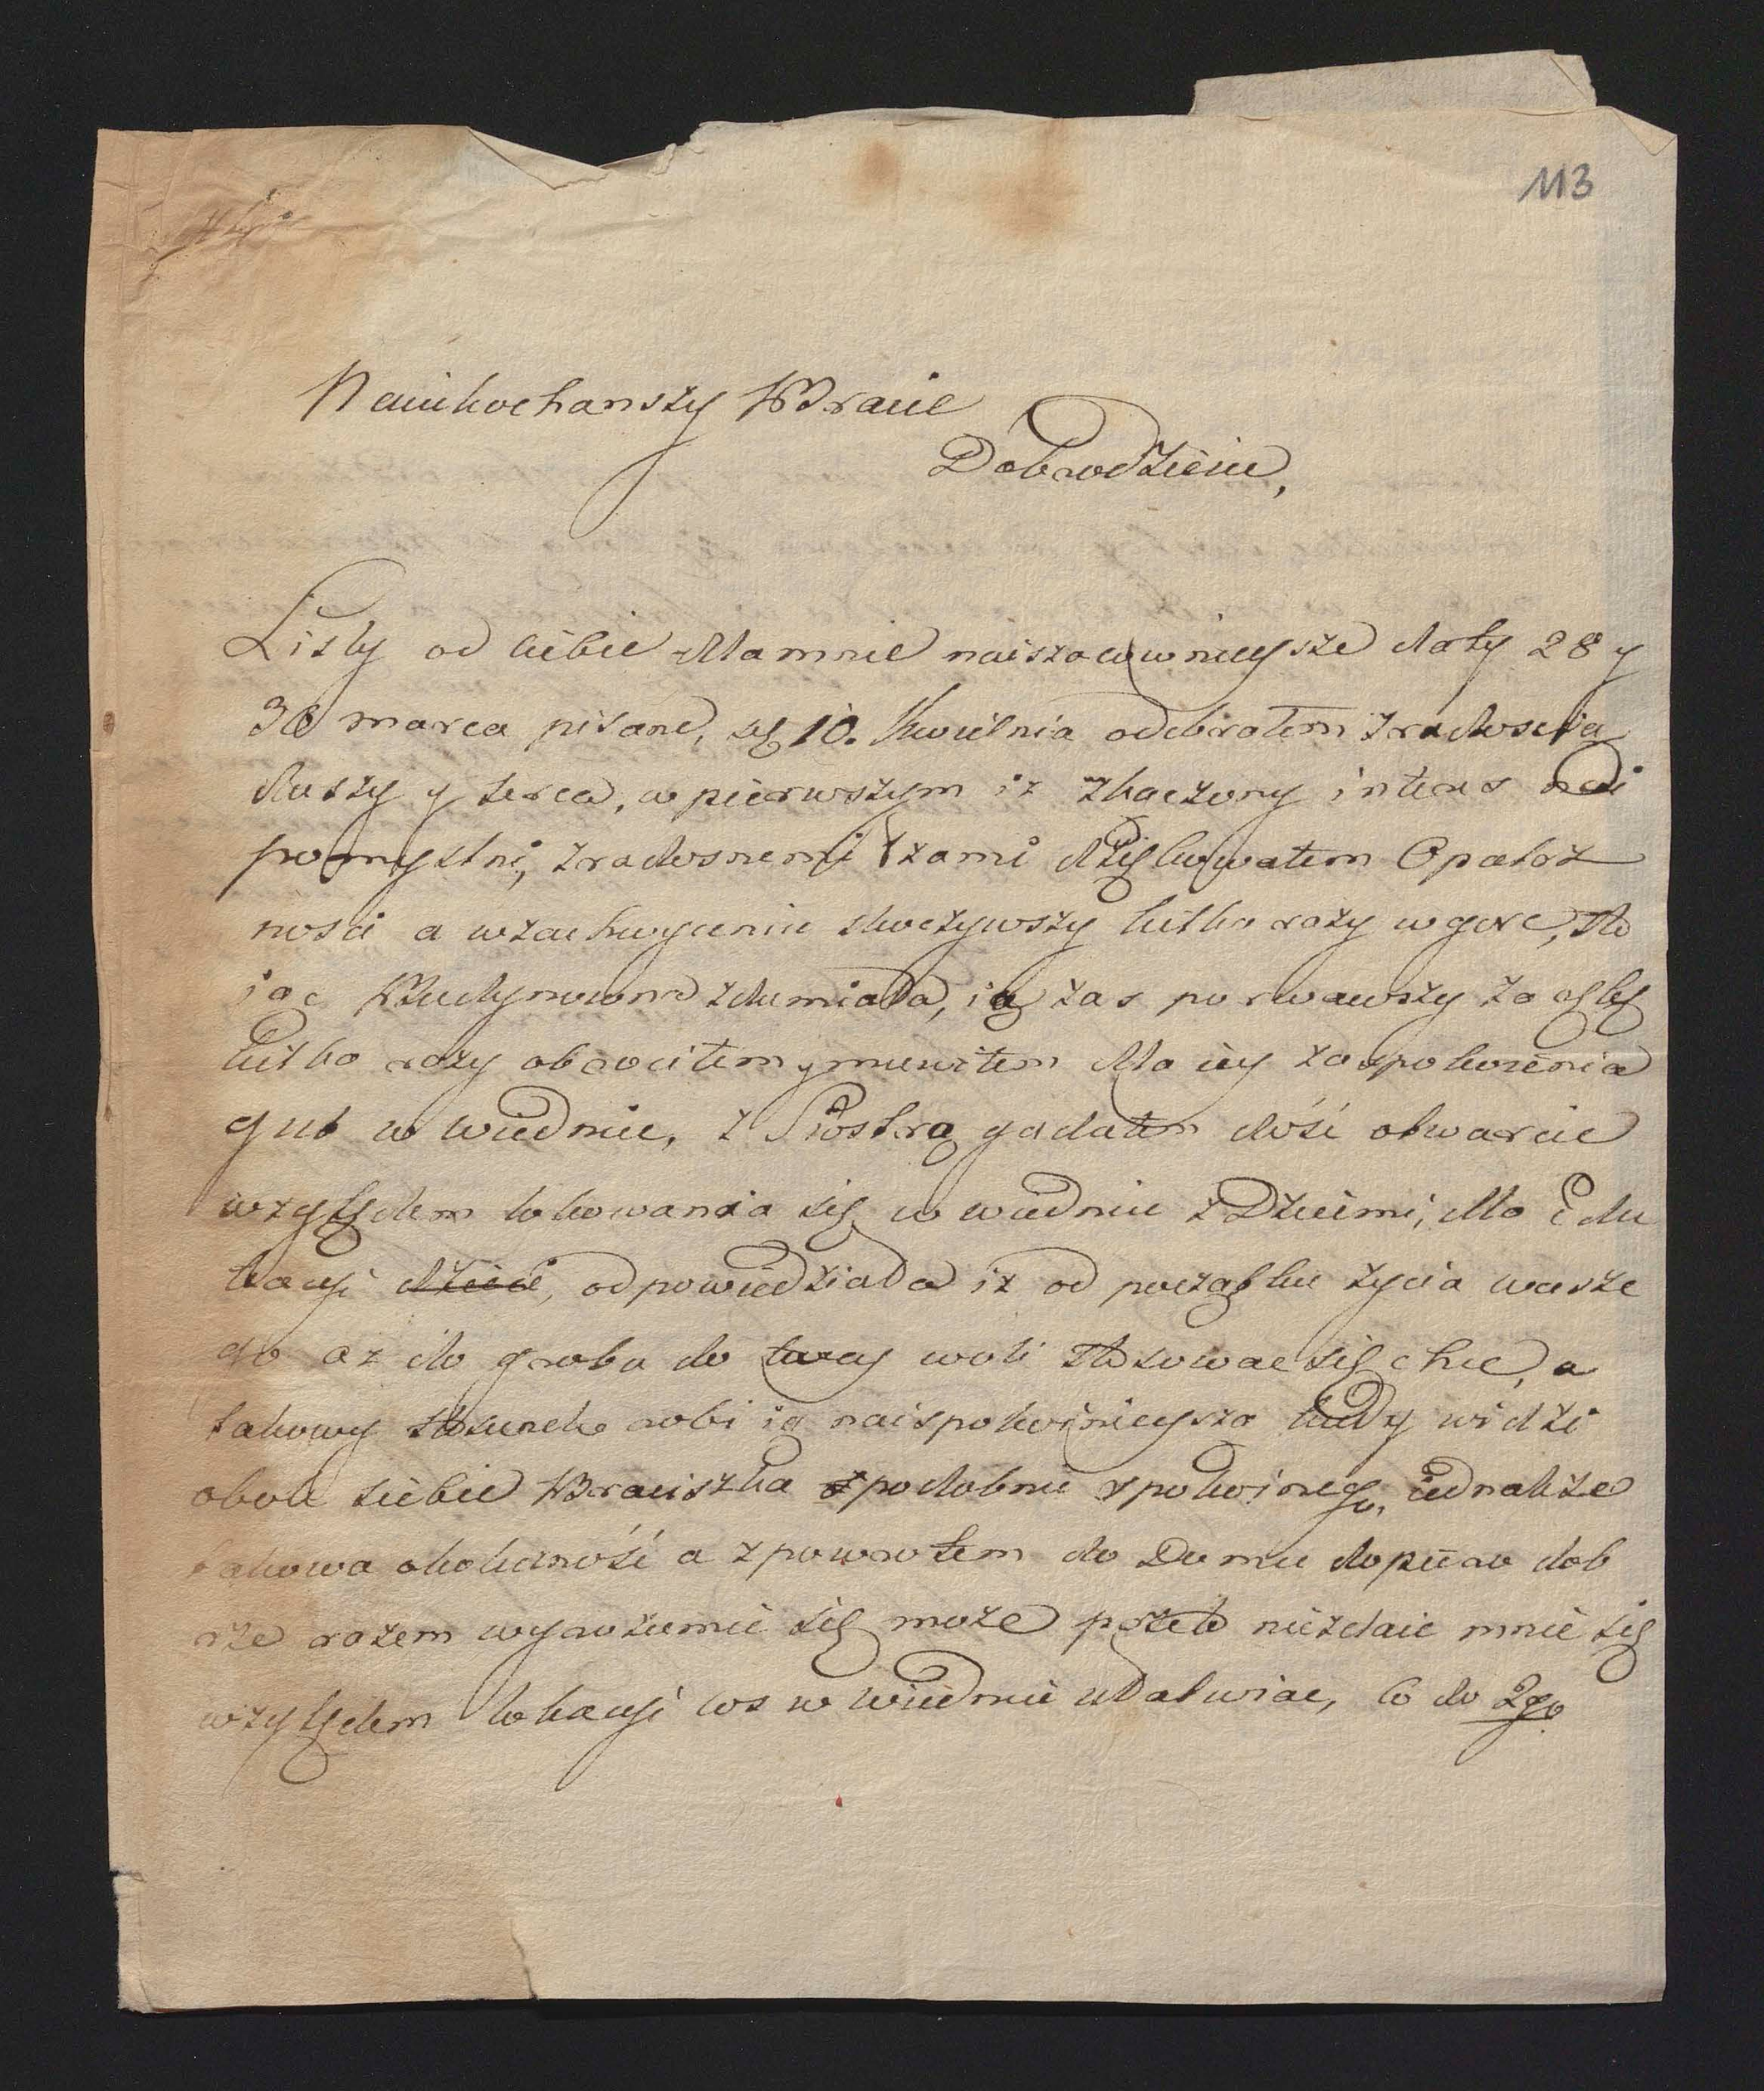 113
Naiukochanszy WBracie
Dobrodzieiu,
Listy od ciebie dla mnie naiszacowwnieysze daty 28 y
30 marca pisane, 10. Kwietnia odebrałem z radoscią
duszy y serca, w pierwszym iż zkaczony interes nai
pomyslni, z radosnemi łzami dziękowałem Opatrz
nosci a w zachwyceniu skoczywszy kilka razy w gorę, sto
iąc zdumiała, ią zas porwawszy za ręke
kilka razy obrociłem y mowiłem dla iey zaspokoienia
gut w Wiedniu, z Siostrą gadałem dość otwarcie
względem lokowania się w wiedniu z Dziecmi, dla Edu
kacyi dzieci, odpowiedziała iż od początku życia wasze
go az do grobu do twey woli stosowac się chce, a
takowy stosunek robi ią naispokoinieyszą kiedy widzi
obok siebie WBraciszka podobnie spokoinego, iednakże
takowa okolicność a z powrotem do Domu dopiero dob
rze razem wyrozumieć się może przeto niezdaie mnie się
względem lokacyi cos w Wiedniu ułatwiac, Co do 2go